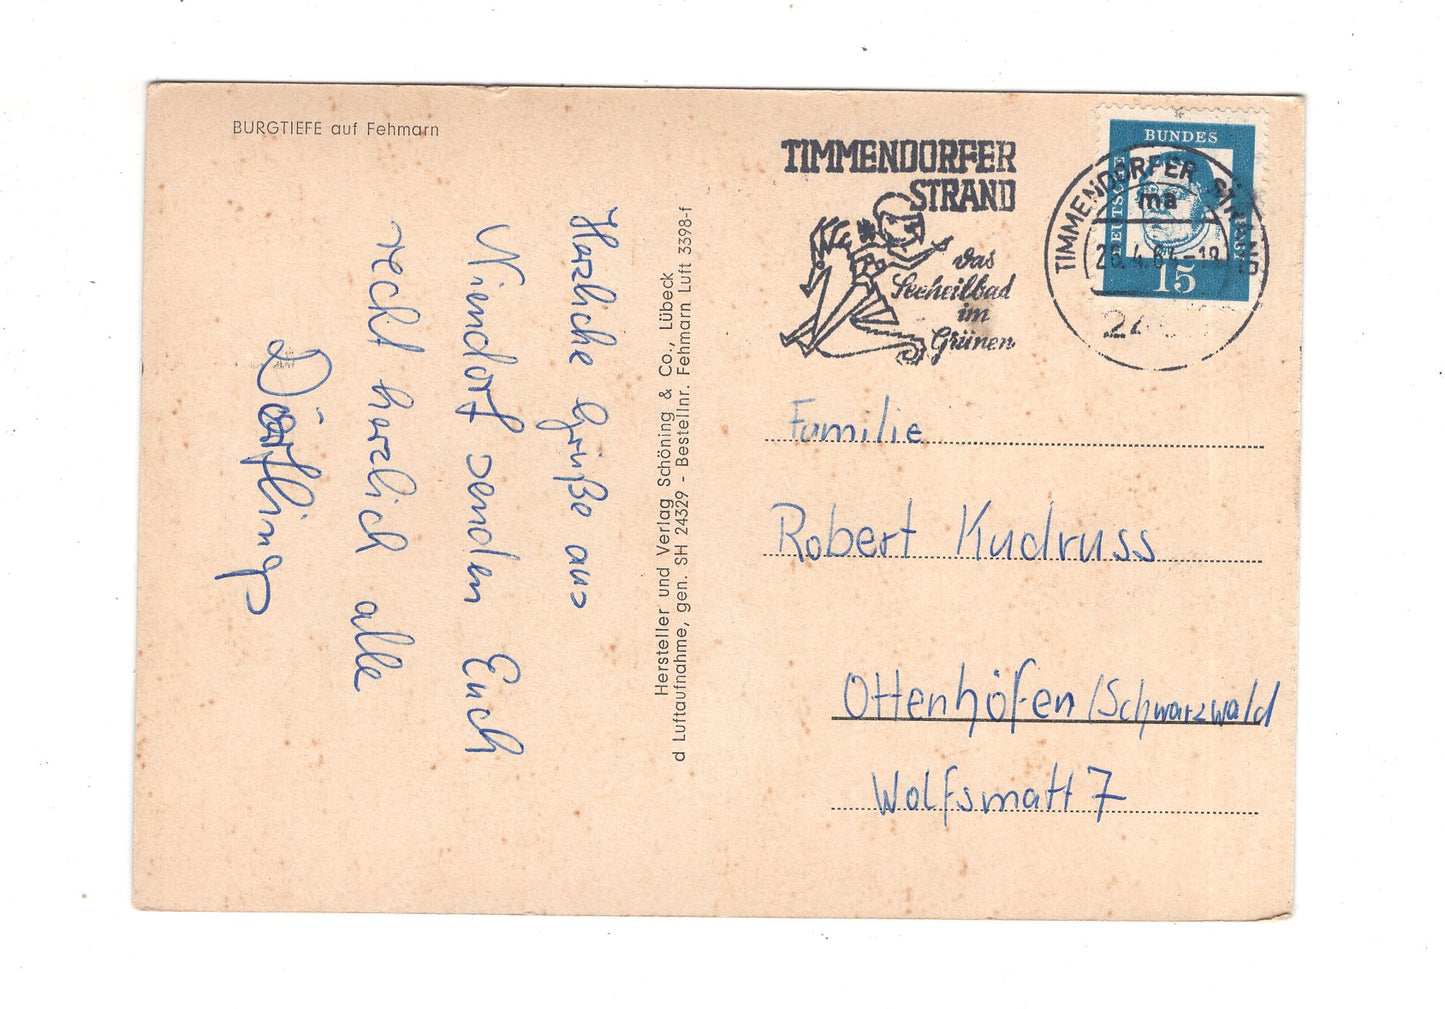 BURGTIEFE auf Fehmarn
Herzliche Grüße aus
Niendorf senden Euch
recht herzlich alle
Hersteller und Verlag Schöning & Co., Lübeck
d Luftaufnahme, gen. SH 24329 - Bestellnr. Fehmarn Luft 3398-f
TIMMENDORFER
STRAND
das
Seeheilbad
im
Grünen
TIMMENDORFER STRAND
ma
26.4.64-18
DEUTSCHE
BUNDES
15
Familie
Robert Kudruss
Ottenhöfen/Schwarzwald
Wolfsmatt 7